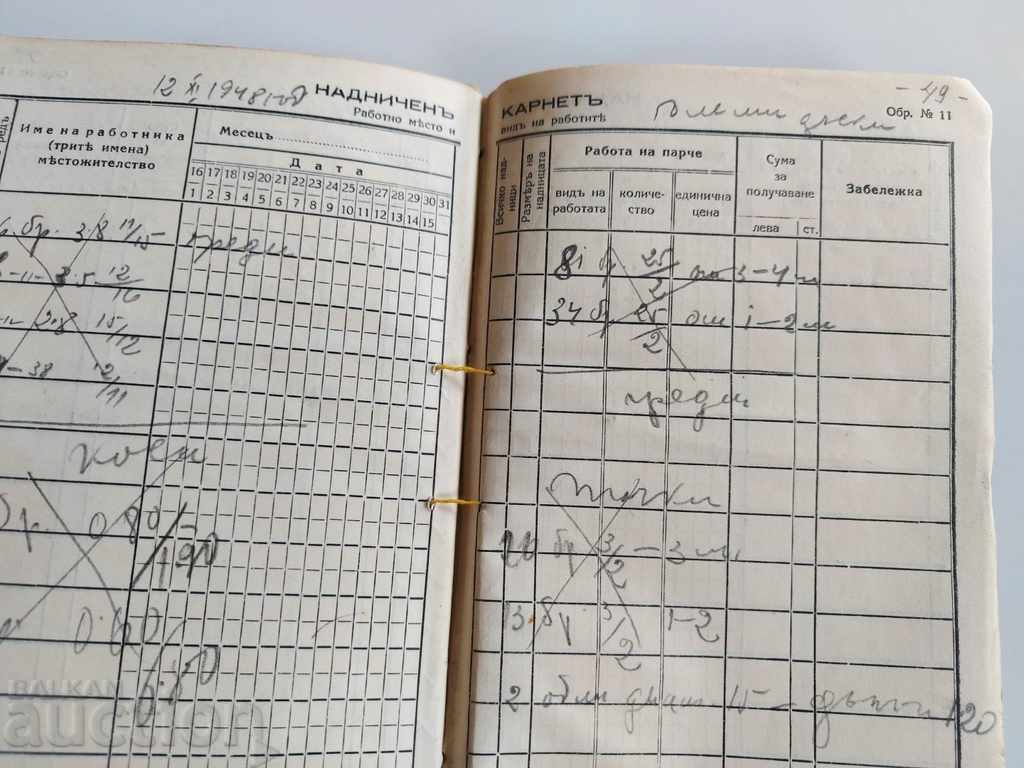 12 XI 1948 год НАДНИЧЕНЪ
Работно мѣсто и
редъ
Име на работника
(тритѣ имена)
мѣстожителство
Месецъ
Дата
16 17 18 19 20 21 22 23 24 25 26 27 28 29 30 31
1 2 3 4 5 6 7 8 9 10 11 12 13 14 15
бр. 3.8 12/15 греди
3.5 12/16
15/12
38 12/11
0.80/
1.90
0.60/
- 49 -
КАРНЕТЪ
видъ на работитѣ
Големи дъски
Обр. № 11
Всичко над-
ници
Размѣръ на
надницата
Работа на парче
видъ на
работата
количе-
ство
единична
цена
Сума
за
получаване
лева ст.
Забележка
81 бр 25/2 по 3-4 м
34 бр 25/2 от 1-2 м
греди
20 бр 3/2 - 3 м
13 бр 3/2 1-2
2 обли 15 - 120
BALKAN
auction